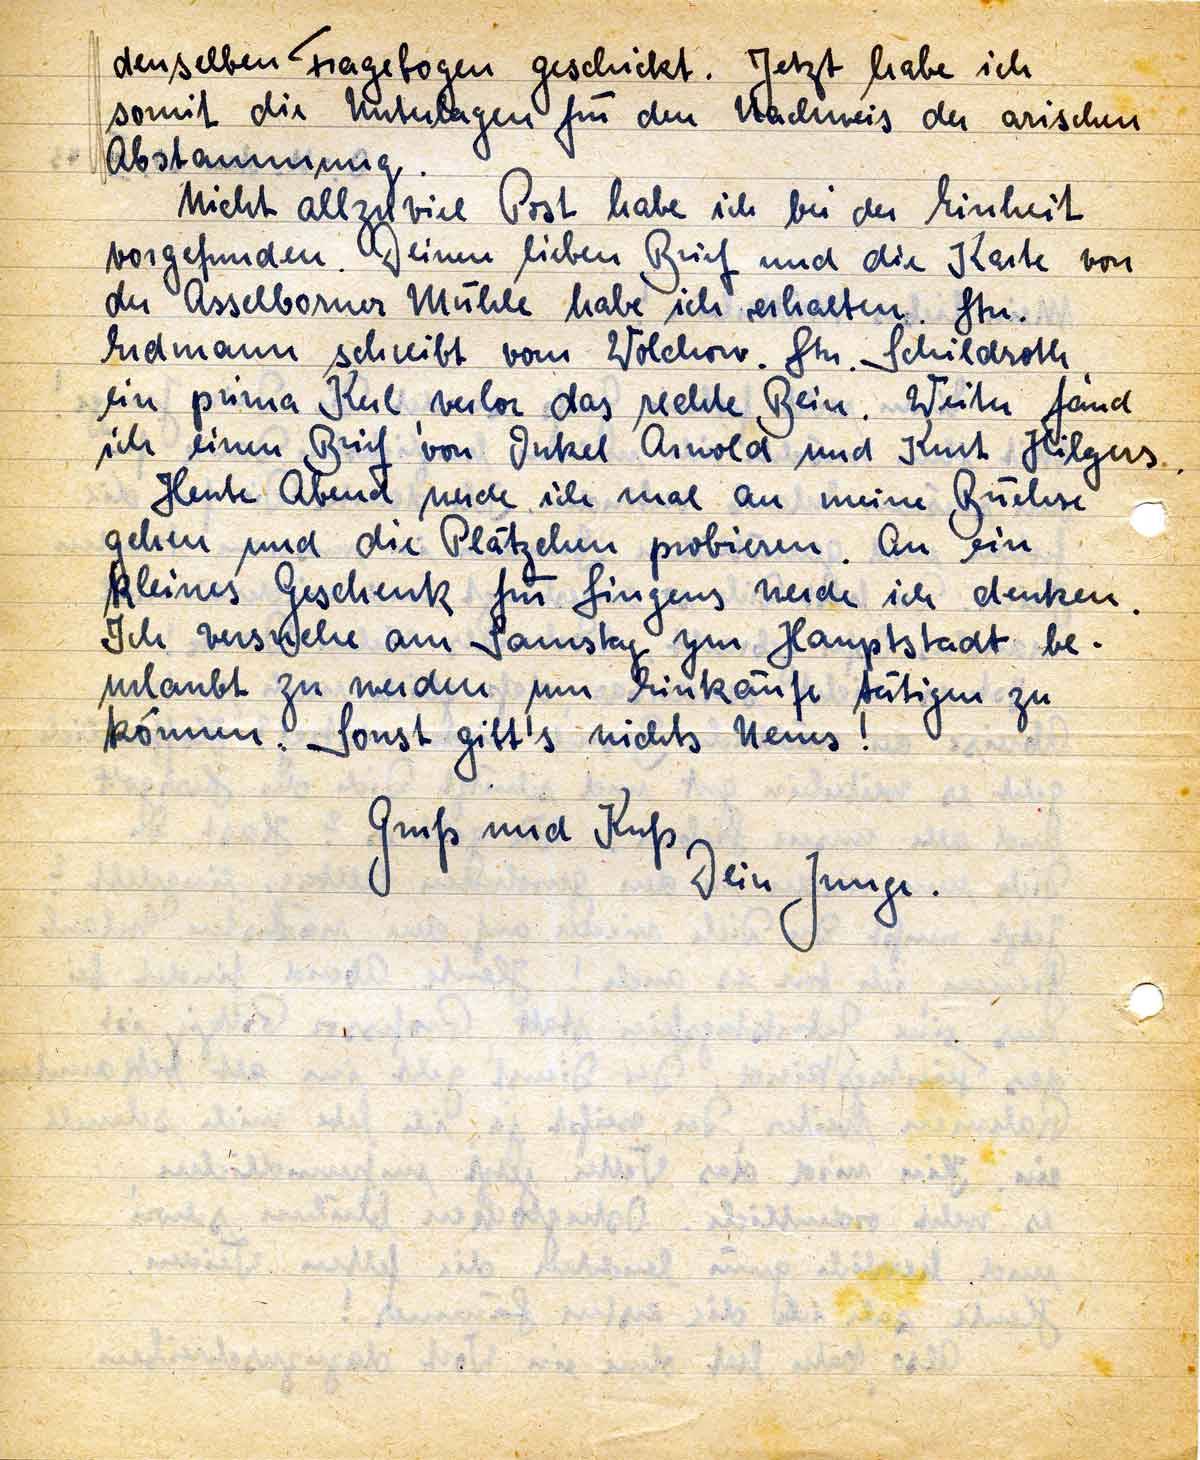 denselben Fragebogen geschickt. Jetzt habe ich
somit die Unterlagen für den Nachweis der arischen
Abstammung.
Nicht allzuviel Post habe ich bei der Einheit
vorgefunden. Deinen lieben Brief und die Karte von
der Asselborner Mühle habe ich erhalten. Stn.
Erdmann schreibt vom Wolchow. Stn. Schildroth
ein prima Kerl verlor das rechte Bein. Weiter fand
ich einen Brief von Onkel Arnold und Kurt Hilgers.
Heute Abend werde ich mal an meine Büchse
gehen und die Plätzchen probieren. An ein
kleines Geschenk für Lingens werde ich denken.
Ich versuche am Samstag zur Hauptstadt be-
urlaubt zu werden um Einkäufe tätigen zu
können. Sonst gibt's nichts Neues!
Gruß und Kuß
Dein Junge.